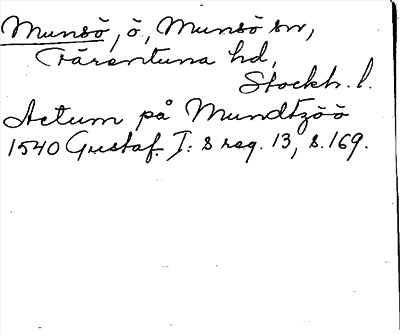 Munsö, ö, Munsö sn,
Färentuna hd,
Stockh. l.
Actum på Mundtzöö
1540 Gustaf I:s reg. 13, s. 169.